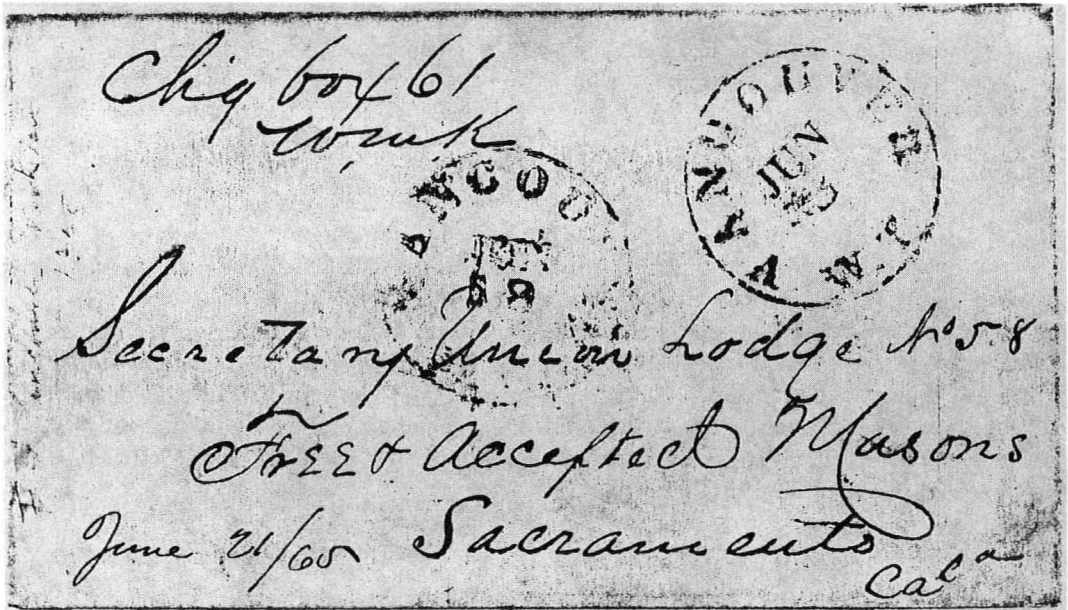 Chg box 61
VANCOUVER
JUN
W.T.
ANCOU
Secretary Union Lodge No 58
Free & Accepted Masons
June 21/65 Sacramento
Cala